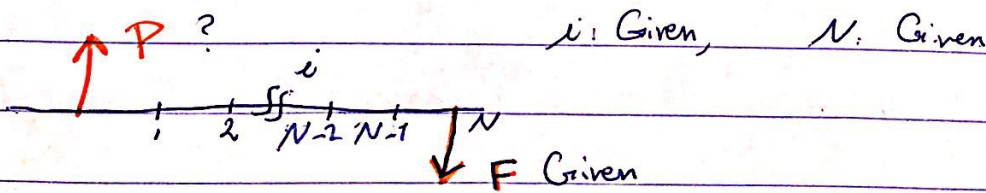 P ? i: Given, N: Given
i
1 2 N-2 N-1 N
F Given